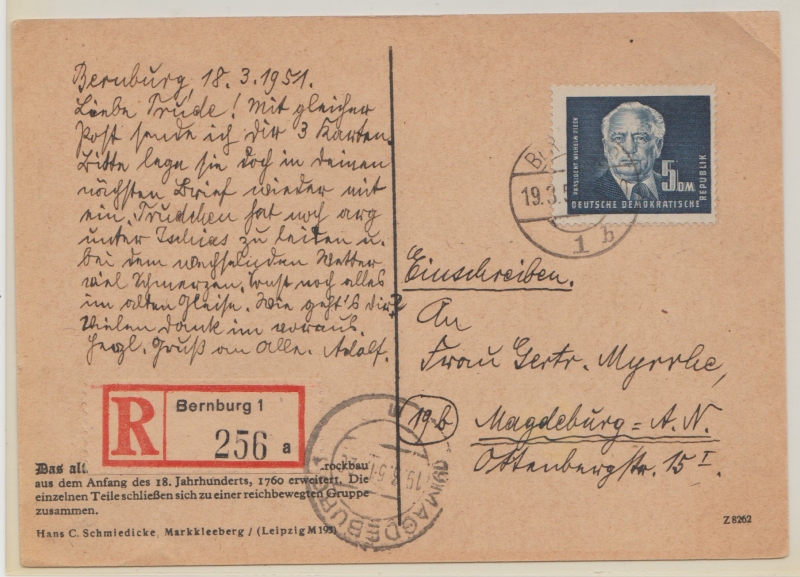 Bernburg, 18.3.1951.
Liebe Trude! Mit gleicher
Post sende ich dir 3 Karten.
Bitte lege sie doch in deinen
nächsten Brief wieder mit
ein. Trudchen hat noch arg
unter Ischias zu leiden u.
bei dem wechselnden Wetter
viel Schmerzen. Sonst noch alles
im alten Gleise. Wie geht's dir?
Vielen Dank im voraus.
Herzl. Gruß an Alle. Adolf.
R
Bernburg 1
256 a
Das alt
rockbau
aus dem Anfang des 18. Jahrhunderts, 1760 erweitert. Die
einzelnen Teile schließen sich zu einer reichbewegten Gruppe
zusammen.
Hans C. Schmiedicke, Markkleeberg / (Leipzig M 195)
PRÄSIDENT WILHELM PIECK
5 DM
DEUTSCHE DEMOKRATISCHE
REPUBLIK
19.3.5
1 b
Einschreiben.
An
Frau Gertr. Myrrhe,
19b
Magdeburg=A.N.
Ottenbergstr. 15 I.
MAGDEBURG
Z 8262